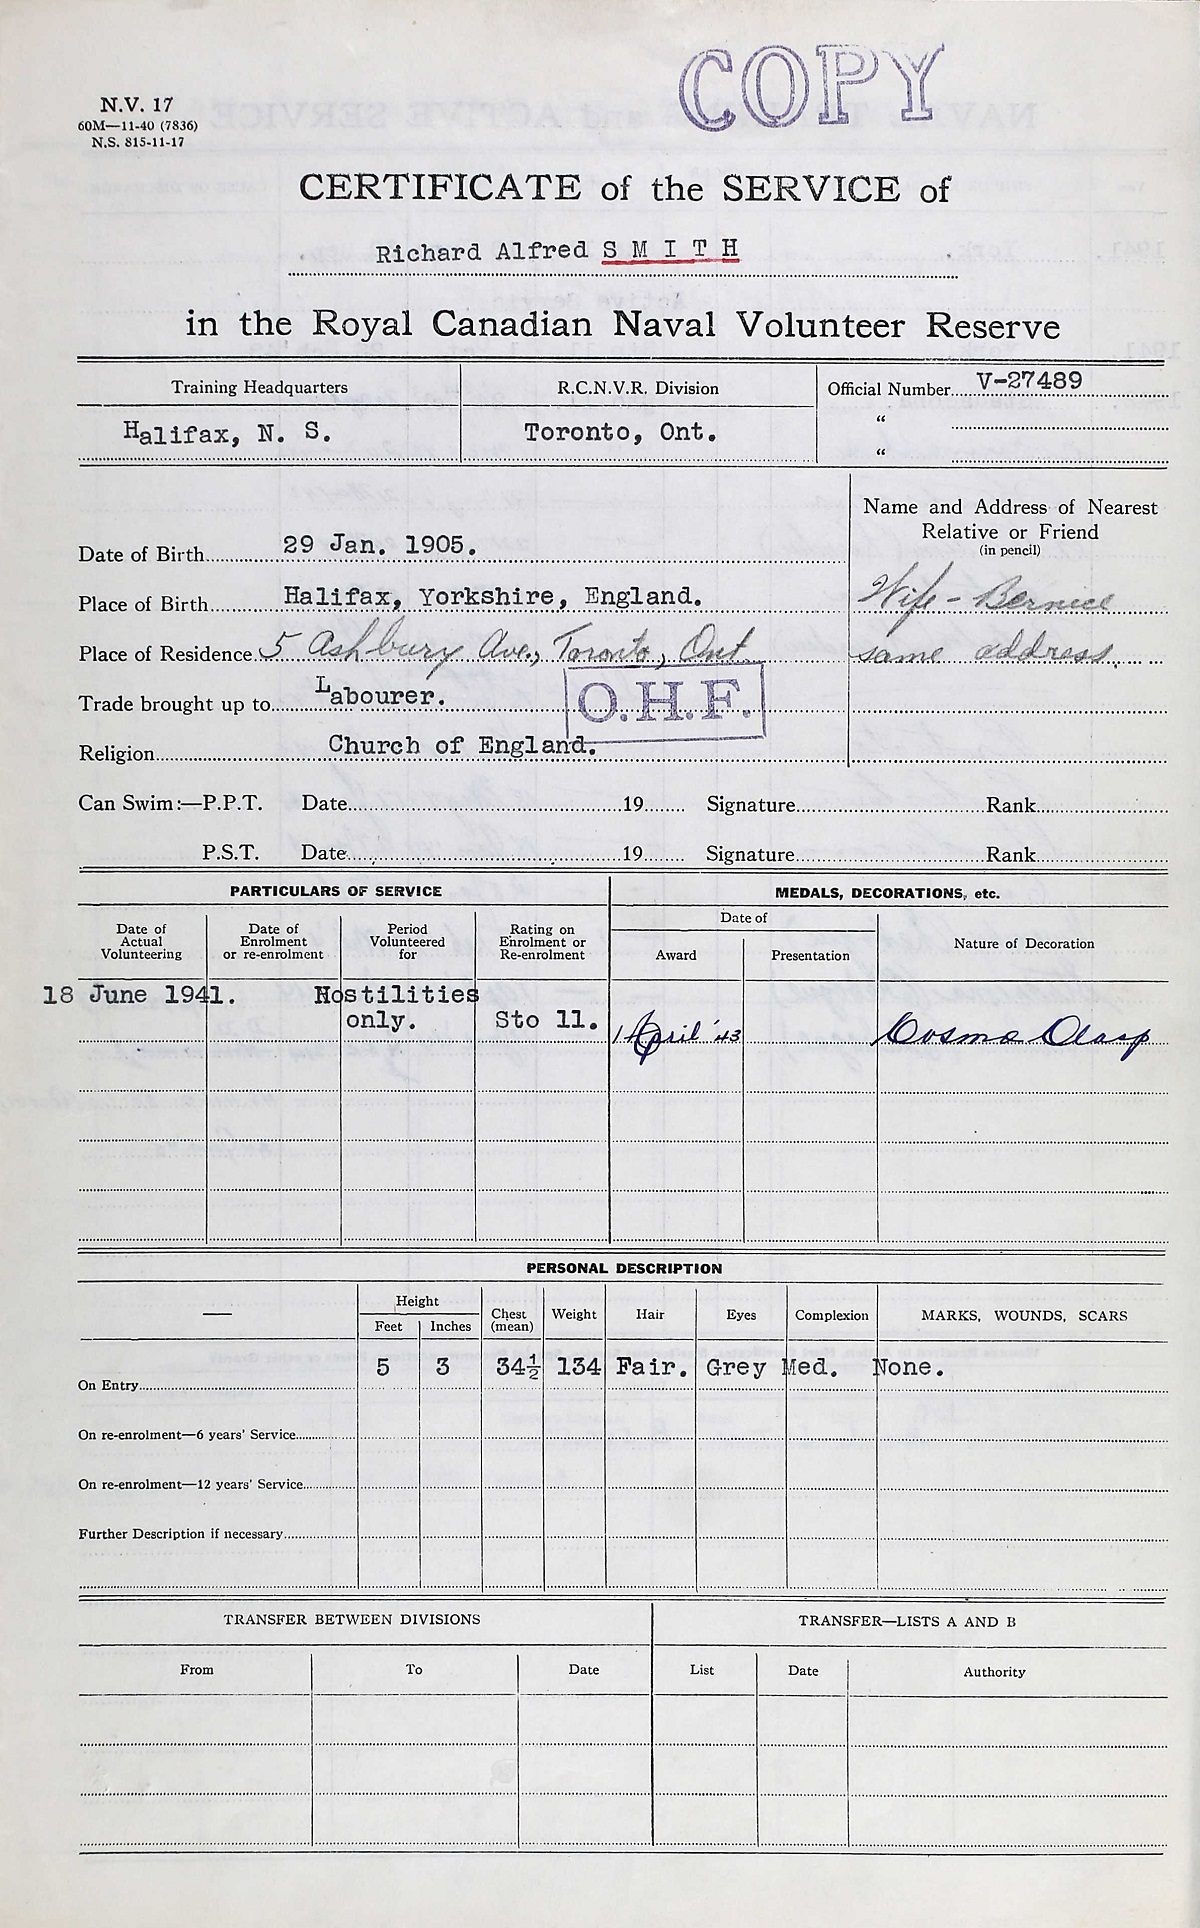 COPY
N.V. 17
60M—11-40 (7836)
N.S. 815-11-17
CERTIFICATE of the SERVICE of
Richard Alfred S M I T H
in the Royal Canadian Naval Volunteer Reserve
Training Headquarters
R.C.N.V.R. Division
Official Number V-27489
Halifax, N. S.
Toronto, Ont.
“
“
Name and Address of Nearest
Relative or Friend
(in pencil)
Date of Birth 29 Jan. 1905.
Place of Birth Halifax, Yorkshire, England.
Wife - Bernice
Place of Residence 5 Ashbury Ave., Toronto, Ont
same address.
Trade brought up to Labourer.
O.H.F.
Religion Church of England.
Can Swim:—P.P.T. Date 19 Signature Rank
P.S.T. Date 19 Signature Rank
PARTICULARS OF SERVICE
MEDALS, DECORATIONS, etc.
Date of Actual Volunteering
Date of Enrolment or re-enrolment
Period Volunteered for
Rating on Enrolment or Re-enrolment
Date of
Award
Presentation
Nature of Decoration
18 June 1941. Hostilities
only. Sto 11. 1 April '43
Clasp
PERSONAL DESCRIPTION
—
Height
Feet
Inches
Chest (mean)
Weight
Hair
Eyes
Complexion
MARKS, WOUNDS, SCARS
On Entry 5 3 34½ 134 Fair. Grey Med. None.
On re-enrolment—6 years' Service
On re-enrolment—12 years' Service
Further Description if necessary
TRANSFER BETWEEN DIVISIONS
TRANSFER—LISTS A AND B
From To Date List Date Authority